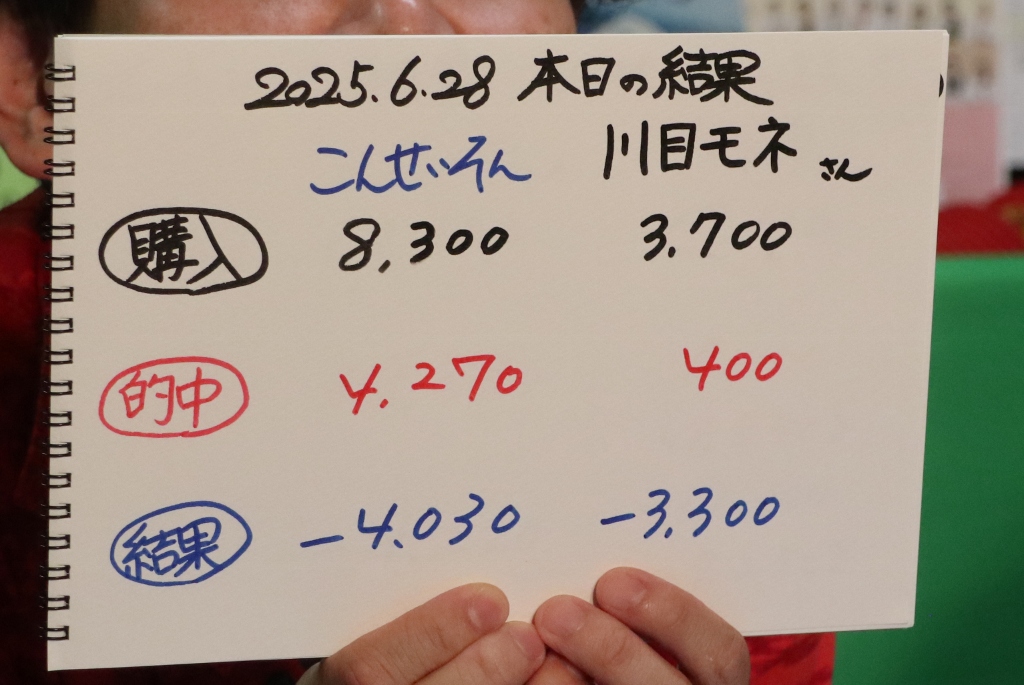 2025.6.28 本日の結果
こんせいそん 川目モネ さん
購入 8,300 3.700
的中 4.270 400
結果 -4.030 -3.300